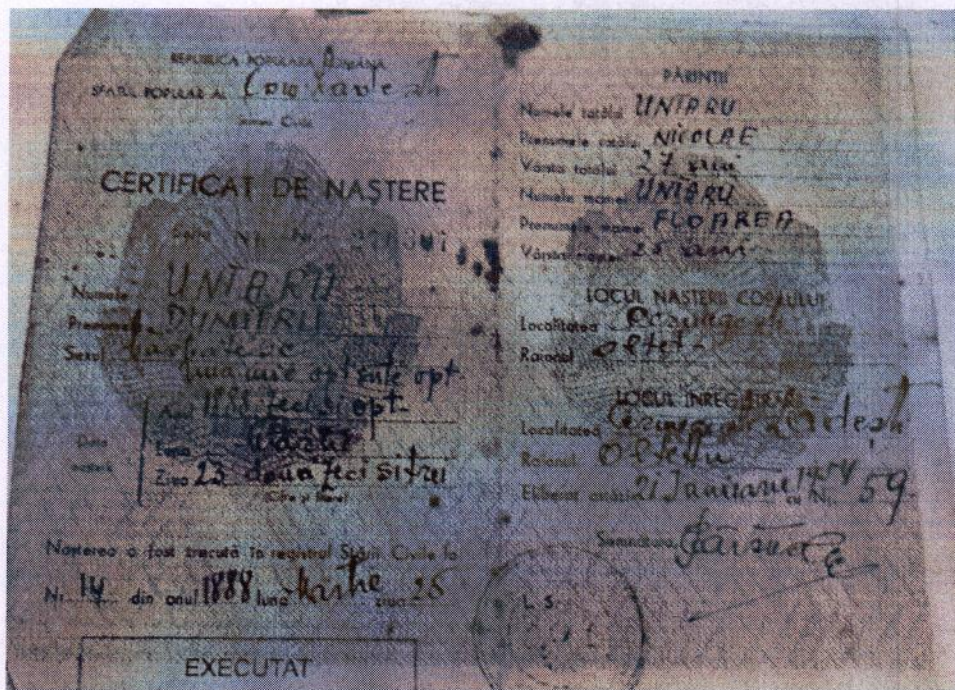 REPUBLICA POPULARA ROMÂNA
SFATUL POPULAR AL
Starea Civilă
CERTIFICAT DE NAȘTERE
Seria Nr.
Numele UNTARU
Prenumele DUMITRU
Sexul bărbătesc
una mie opt sute opt
Anul 1888 zeci și opt
Data
Luna Martie
Ziua 23 două zeci și trei
(Cifre și litere)
Nașterea a fost trecută în registrul Stării Civile la
Nr. 14 din anul 1888 luna Martie ziua 25
EXECUTAT
PĂRINȚII
Numele tatălui UNTARU
Prenumele tatălui NICOLAE
Vârsta tatălui 27 ani
Numele mamei UNTARU
Prenumele mamei FLOAREA
Vârsta mamei 25 ani
LOCUL NAȘTERII COPILULUI
Localitatea
Raionul Olteț
LOCUL ÎNREGISTRĂRII
Localitatea
Raionul Oltețu
Eliberat astăzi 21 Ianuarie 1954 cu Nr. 59
Semnătura,
L. S.